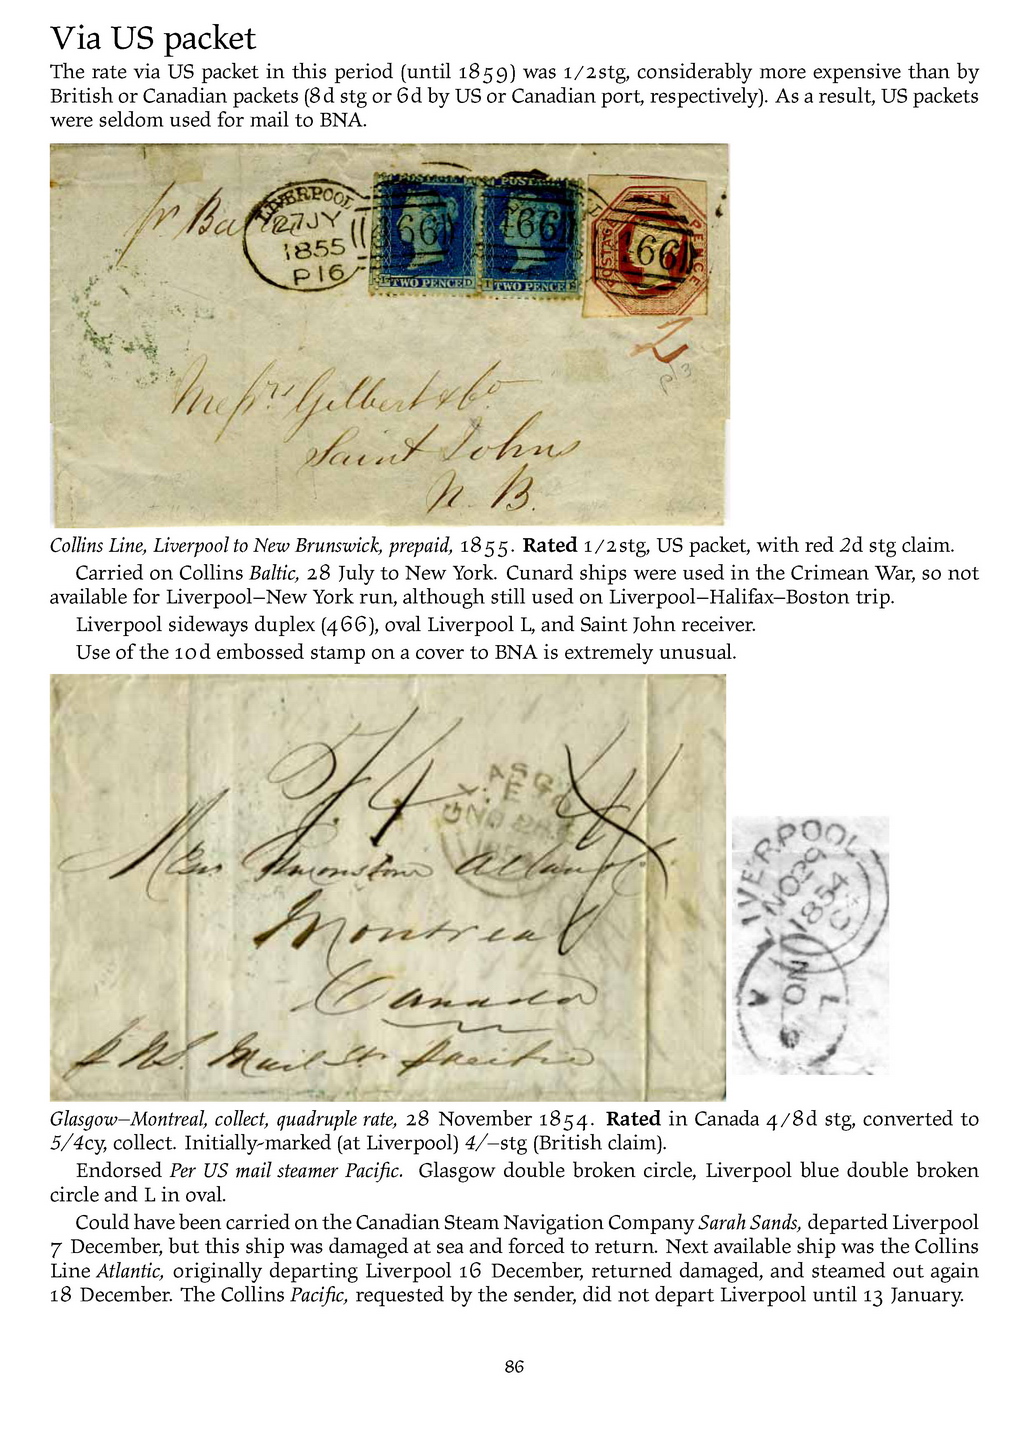 Via US packet
The rate via US packet in this period (until 1859) was 1/2stg, considerably more expensive than by
British or Canadian packets (8d stg or 6d by US or Canadian port, respectively). As a result, US packets
were seldom used for mail to BNA.
LIVERPOOL
27 JY
1855
P 16
466
466
466
POSTAGE
POSTAGE
TWO PENCE
TWO PENCE
POSTAGE
PENCE
pr Baltic
2
Messrs Gilbert & Co
Saint Johns
N. B.
Collins Line, Liverpool to New Brunswick, prepaid, 1855. Rated 1/2stg, US packet, with red 2d stg claim.
Carried on Collins Baltic, 28 July to New York. Cunard ships were used in the Crimean War, so not
available for Liverpool–New York run, although still used on Liverpool–Halifax–Boston trip.
Liverpool sideways duplex (466), oval Liverpool L, and Saint John receiver.
Use of the 10d embossed stamp on a cover to BNA is extremely unusual.
5/4
4/
Montreal
Canada
p US. Mail St. Pacific
LIVERPOOL
NO 29
1854
L
Glasgow–Montreal, collect, quadruple rate, 28 November 1854. Rated in Canada 4/8d stg, converted to
5/4cy, collect. Initially-marked (at Liverpool) 4/–stg (British claim).
Endorsed Per US mail steamer Pacific. Glasgow double broken circle, Liverpool blue double broken
circle and L in oval.
Could have been carried on the Canadian Steam Navigation Company Sarah Sands, departed Liverpool
7 December, but this ship was damaged at sea and forced to return. Next available ship was the Collins
Line Atlantic, originally departing Liverpool 16 December, returned damaged, and steamed out again
18 December. The Collins Pacific, requested by the sender, did not depart Liverpool until 13 January.
86